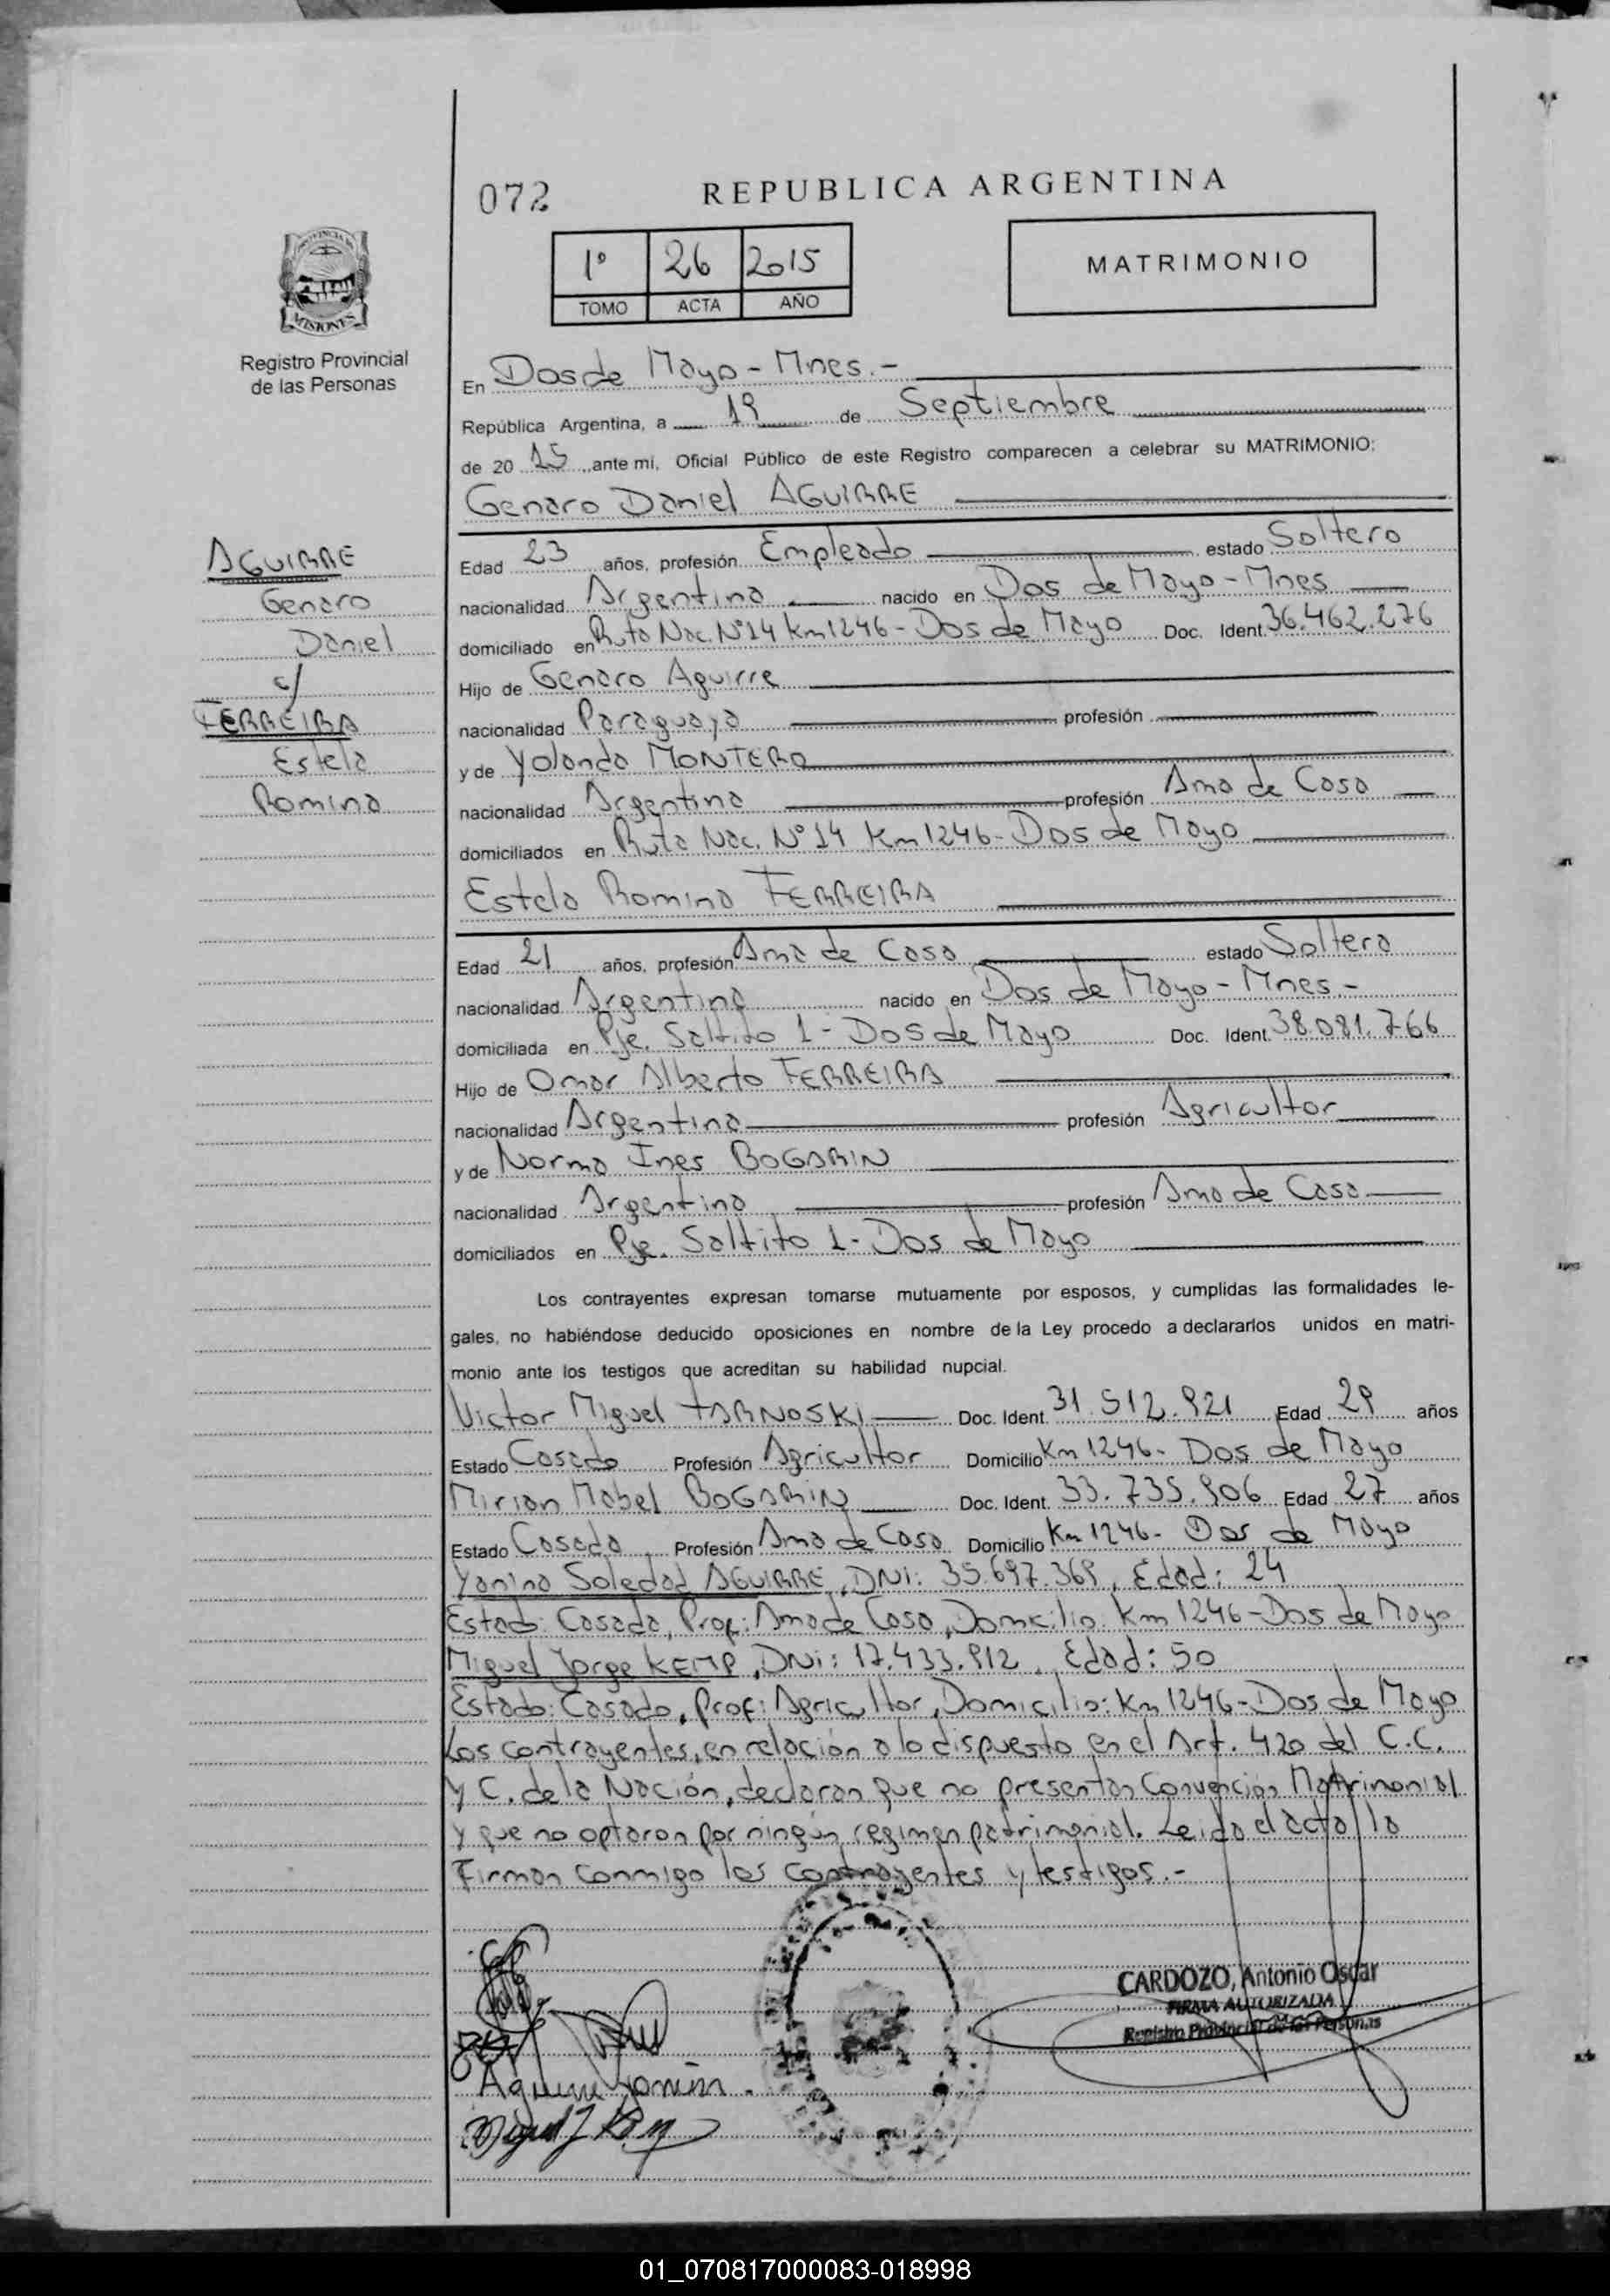 072
REPUBLICA ARGENTINA
1º 26 2015
TOMO ACTA AÑO
MATRIMONIO
PROVINCIA DE
MISIONES
Registro Provincial
de las Personas
En Dos de Mayo - Mnes.-
República Argentina, a 19 de Septiembre
de 20 15 ante mi, Oficial Público de este Registro comparecen a celebrar su MATRIMONIO:
Genaro Daniel AGUIRRE
AGUIRRE
Genaro
Daniel
c/
FERREIRA
Estela
Romina
Edad 23 años, profesión Empleado estado Soltero
nacionalidad Argentina nacido en Dos de Mayo - Mnes
domiciliado en Ruta Nac. Nº 14 Km 1246 - Dos de Mayo Doc. Ident. 36.462.276
Hijo de Genaro Aguirre
nacionalidad Paraguaya profesión
y de Yolanda MONTERO
nacionalidad Argentina profesión Ama de Casa
domiciliados en Ruta Nac. Nº 14 Km 1246 - Dos de Mayo
Estela Romina FERREIRA
Edad 21 años, profesión Ama de Casa estado Soltera
nacionalidad Argentina nacido en Dos de Mayo - Mnes.-
domiciliada en Pje. Saltito 1 - Dos de Mayo Doc. Ident. 38.081.766
Hijo de Omar Alberto FERREIRA
nacionalidad Argentina profesión Agricultor
y de Norma Ines BOGARIN
nacionalidad Argentina profesión Ama de Casa
domiciliados en Pje. Saltito 1 - Dos de Mayo
Los contrayentes expresan tomarse mutuamente por esposos, y cumplidas las formalidades le-
gales, no habiéndose deducido oposiciones en nombre de la Ley procedo a declararlos unidos en matri-
monio ante los testigos que acreditan su habilidad nupcial.
Victor Miguel TARNOSKI Doc. Ident. 31.512.921 Edad 29 años
Estado Casado Profesión Agricultor Domicilio Km 1246 - Dos de Mayo
Mirian Mabel BOGARIN Doc. Ident. 33.735.906 Edad 27 años
Estado Casada Profesión Ama de Casa Domicilio Km 1246 - Dos de Mayo
Yanina Soledad AGUIRRE, DNI: 35.697.369, Edad: 24
Estado: Casada, Prof: Ama de Casa, Domicilio: Km 1246 - Dos de Mayo
Miguel Jorge KEMP, DNI: 17.433.912, Edad: 50
Estado: Casado, Prof: Agricultor, Domicilio: Km 1246 - Dos de Mayo
Los contrayentes, en relación a lo dispuesto en el Art. 420 del C.C.
y C. de la Nación, declaran que no presentan Convención Matrimonial
y que no optaron por ningún regimen patrimonial. Leida el acta la
Firman conmigo los contrayentes y testigos.-
CARDOZO, Antonio Oscar
FIRMA AUTORIZADA
Registro Provincial de las Personas
Aguirre Yanina
01_070817000083-018998